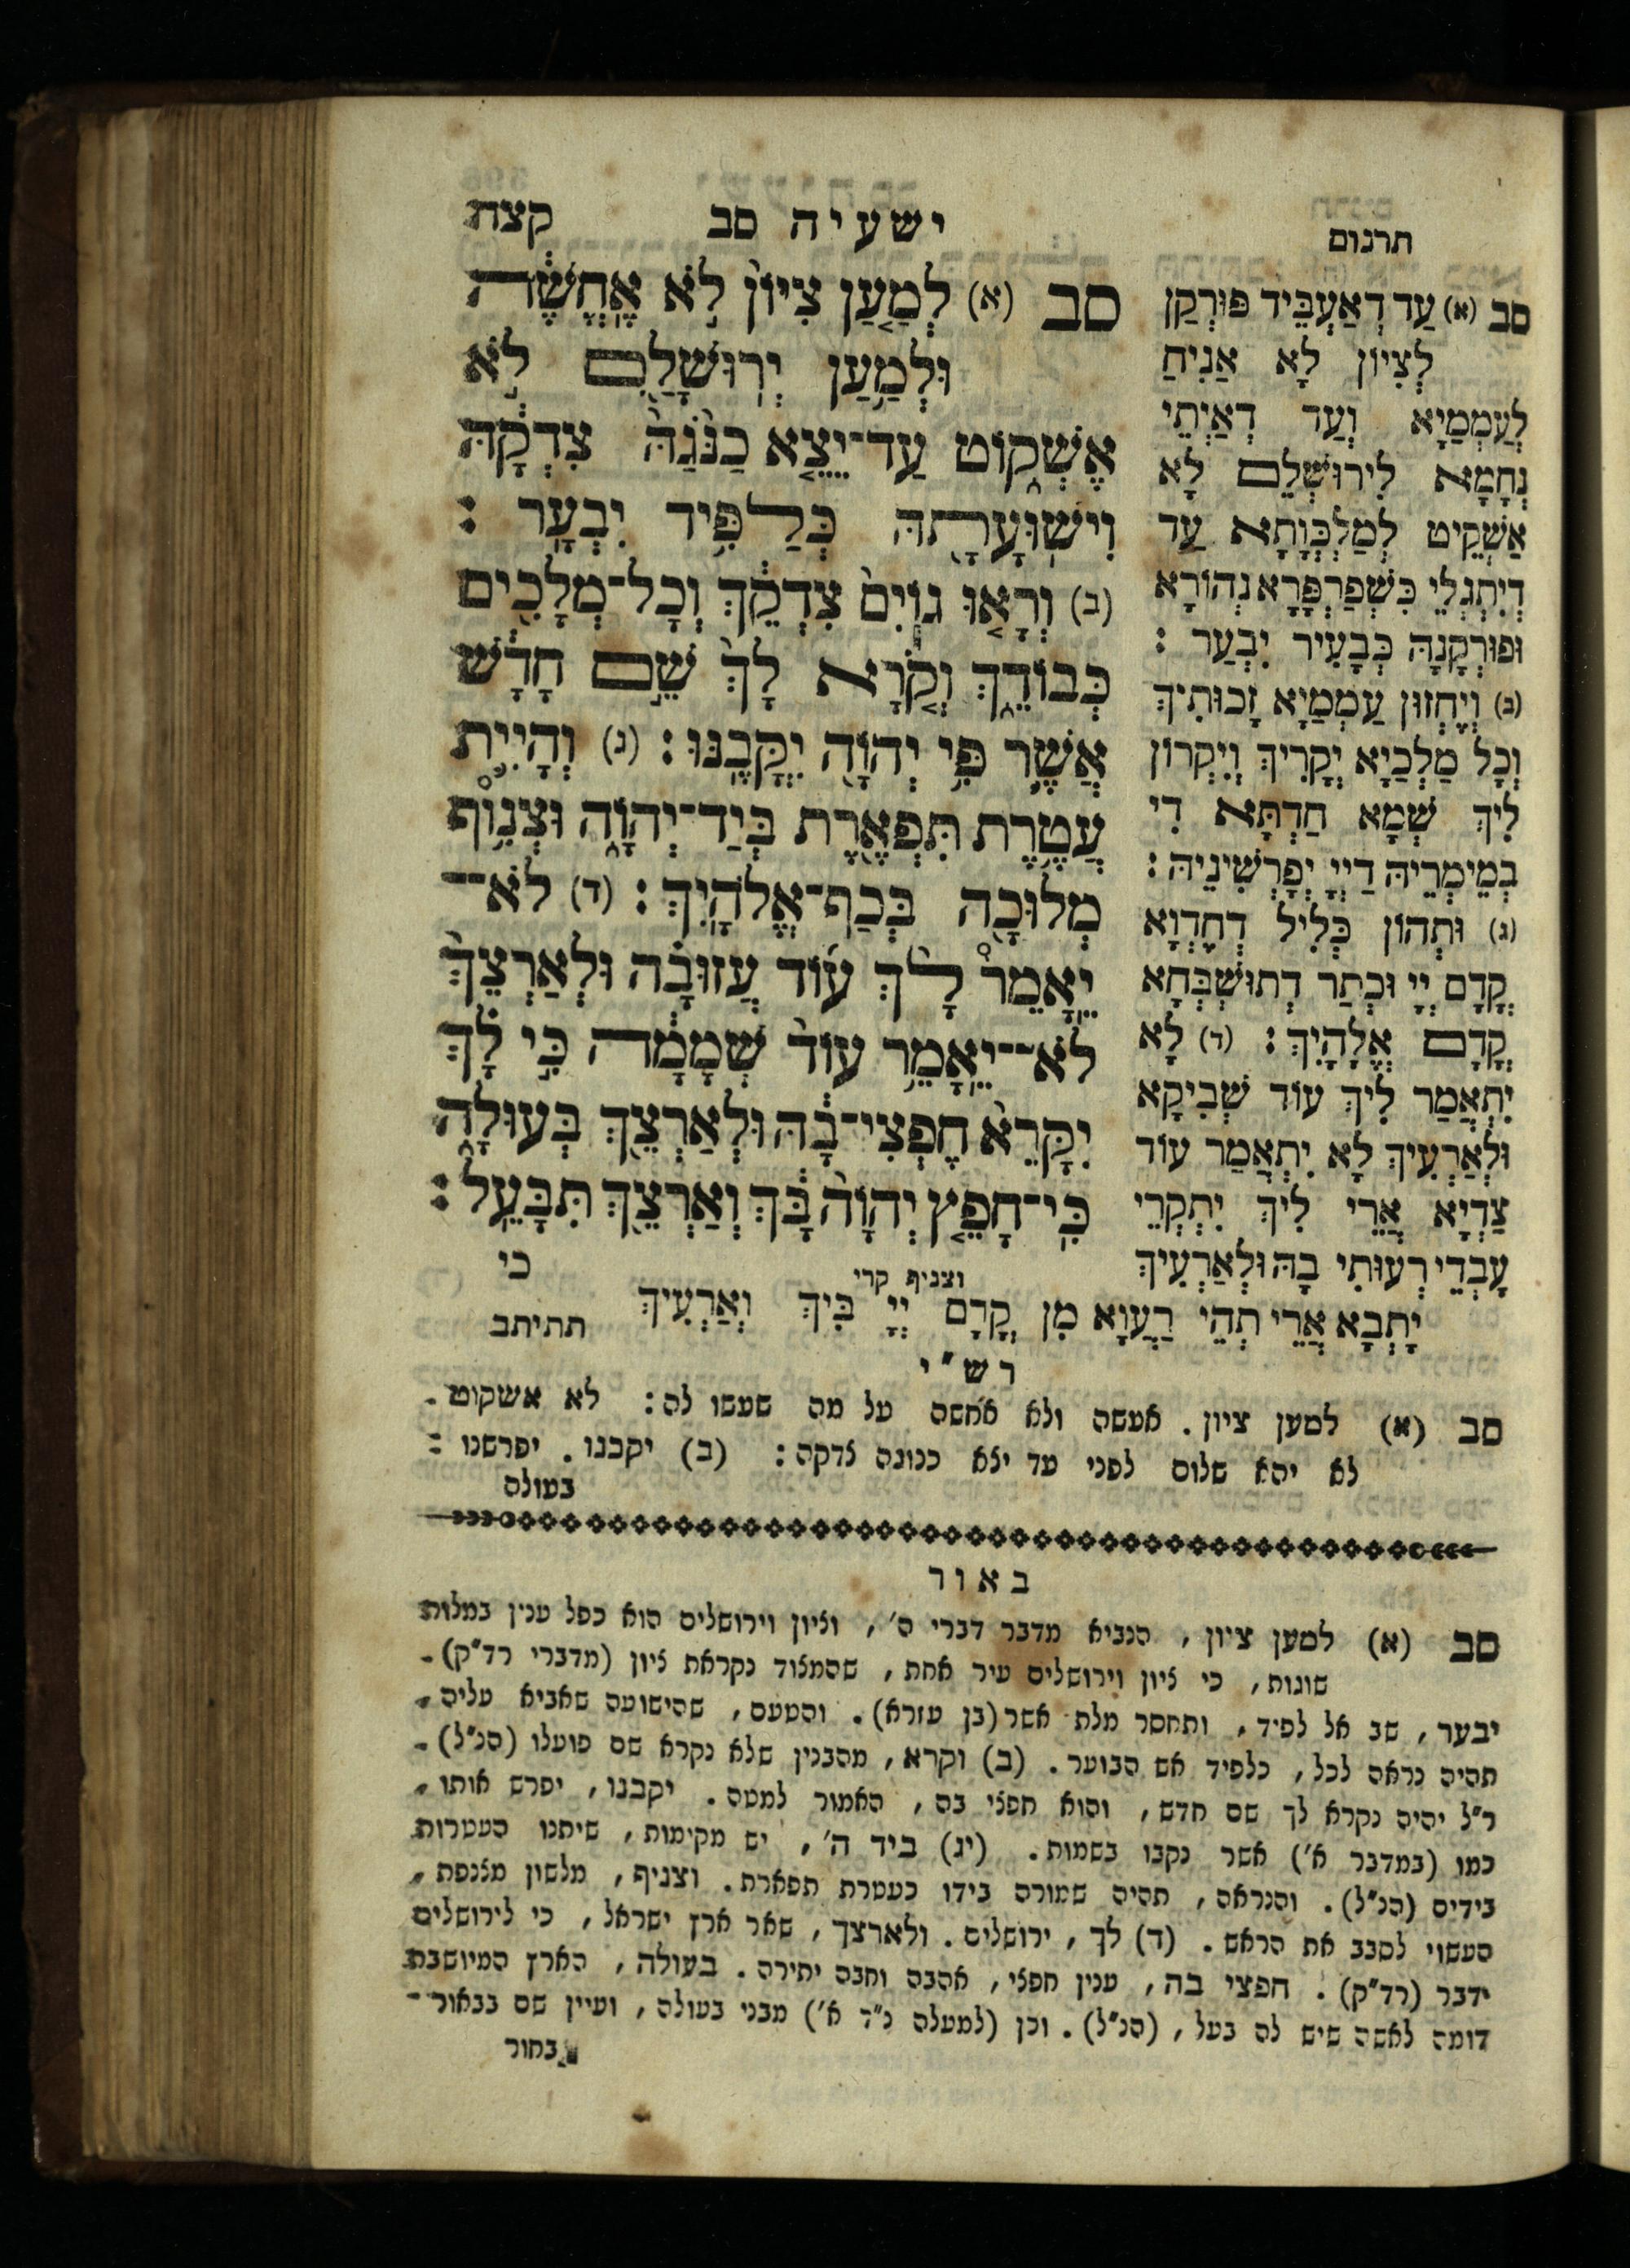 ישעיה סב
קצח
סב (א) לְמַ֤עַן צִיּוֹן֙ לֹ֣א אֶחֱשֶׁ֔ה
וּלְמַ֥עַן יְרוּשָׁלַ֖ם לֹ֣א
אֶשְׁק֑וֹט עַד־יֵצֵ֤א כַנֹּ֙גַהּ֙ צִדְקָ֔הּ
וִישׁוּעָתָ֖הּ כְּלַפִּ֥יד יִבְעָֽר :
(ב) וְרָא֤וּ גוֹיִם֙ צִדְקֵ֔ךְ וְכָל־מְלָכִ֖ים
כְּבוֹדֵ֑ךְ וְקֹ֤רָא לָךְ֙ שֵׁ֣ם חָדָ֔שׁ
אֲשֶׁ֛ר פִּ֥י יְהוָ֖ה יִקֳּבֶֽנּוּ : (ג) וְהָיִ֛ית
עֲטֶ֥רֶת תִּפְאֶ֖רֶת בְּיַד־יְהוָ֑ה וּצְנ֥וֹף
מְלוּכָ֖ה בְּכַף־אֱלֹהָֽיִךְ : (ד) לֹא־
יֵאָמֵר֩ לָ֨ךְ ע֜וֹד עֲזוּבָ֗ה וּלְאַרְצֵךְ֙
לֹא־יֵאָמֵ֥ר עוֹד֙ שְׁמָמָ֔ה כִּ֣י לָ֗ךְ
יִקָּרֵא֙ חֶפְצִי־בָ֔הּ וּלְאַרְצֵ֖ךְ בְּעוּלָ֑ה
כִּֽי־חָפֵ֤ץ יְהוָה֙ בָּ֔ךְ וְאַרְצֵ֖ךְ תִּבָּעֵֽל :
כי
וצניף קרי
תרגום
סב (א) עַד דְאַעְבֵּיד פּוּרְקַן
לְצִיוֹן לָא אַנִיחַ
לְעַמְמַיָא וְעַד דְאַיְתֵי
נְחָמָא לִירוּשְׁלֵם לָא
אַשְׁקֵיט לְמַלְכְּוָתָא עַד
דְיִתְגְלֵי כִּשְׁפַרְפָּרָא נְהוֹרָא
וּפוּרְקָנָהּ כְּבָעִיר יִבְעַר :
(ב) וְיֶחְזוּן עַמְמַיָא זָכוּתִיךְ
וְכָל מַלְכַיָא יְקָרִיךְ וְיִקְרוֹן
לִיךְ שְׁמָא חַדְתָּא דִי
בְמֵימְרֵיהּ דַייָ יְפָרְשִׁינֵיהּ :
(ג) וּתְהוֹן כְּלִיל דְחֶדְוָא
קֳדָם יְיָ וּכְתַר דְתוּשְׁבְּחָא
קֳדָם אֱלָהָיִךְ : (ד) לָא
יִתְאֲמַר לִיךְ עוֹד שְׁבִיקָא
וּלְאַרְעִיךְ לָא יִתְאֲמַר עוֹד
צַדְיָא אֲרֵי לִיךְ יִתְקְרֵי
עָבְדֵי רְעוּתִי בָהּ וּלְאַרְעִיךְ
יָתְבָא אֲרֵי תְהֵי רַעֲוָא מִן קֳדָם יְיָ בִּיךְ וְאַרְעִיךְ
תתיתב
רש״י
סב (א) למען ציון . אעשה ולא אחשה על מה שעשו לה : לא אשקוט .
לא יהא שלום לפני עד יצא כנוגה צדקה : (ב) יקבנו . יפרשנו :
בעולה
באור
סב (א) למען ציון , הנביא מדבר דברי ה׳ , וציון וירושלים הוא כפל ענין במלות
שונות , כי ציון וירושלים עיר אחת , שהמצוד נקראת ציון (מדברי רד״ק) .
יבער , שב אל לפיד , ותחסר מלת אשר (בן עזרא) . והטעם , שהישועה שאביא עליה ,
תהיה נראה לכל , כלפיד אש הבוער . (ב) וקרא , מהבנין שלא נקרא שם פועלו (הנ״ל) .
ר״ל יהיה נקרא לך שם חדש , והוא חפצי בה , האמור למטה . יקבנו , יפרש אותו ,
כמו (במדבר א׳) אשר נקבו בשמות . (יג) ביד ה׳ , יש מקימות , שיתנו העטרות
בידים (הנ״ל) . והנראה , תהיה שמורה בידו כעטרת תפארת . וצניף , מלשון מצנפת ,
העשוי לסבב את הראש . (ד) לך , ירושלים . ולארצך , שאר ארץ ישראל , כי לירושלים
ידבר (רד״ק) . חפצי בה , ענין חפצי , אהבה וחבה יתירה . בעולה , הארץ המיושבת
דומה לאשה שיש לה בעל , (הנ״ל) . וכן (למעלה נ״ד א׳) מבני בעולה , ועיין שם בבאור
בחור